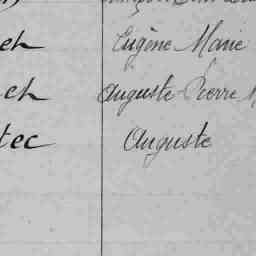 ch Eugène Marie
ch Auguste Pierre M
tec Auguste